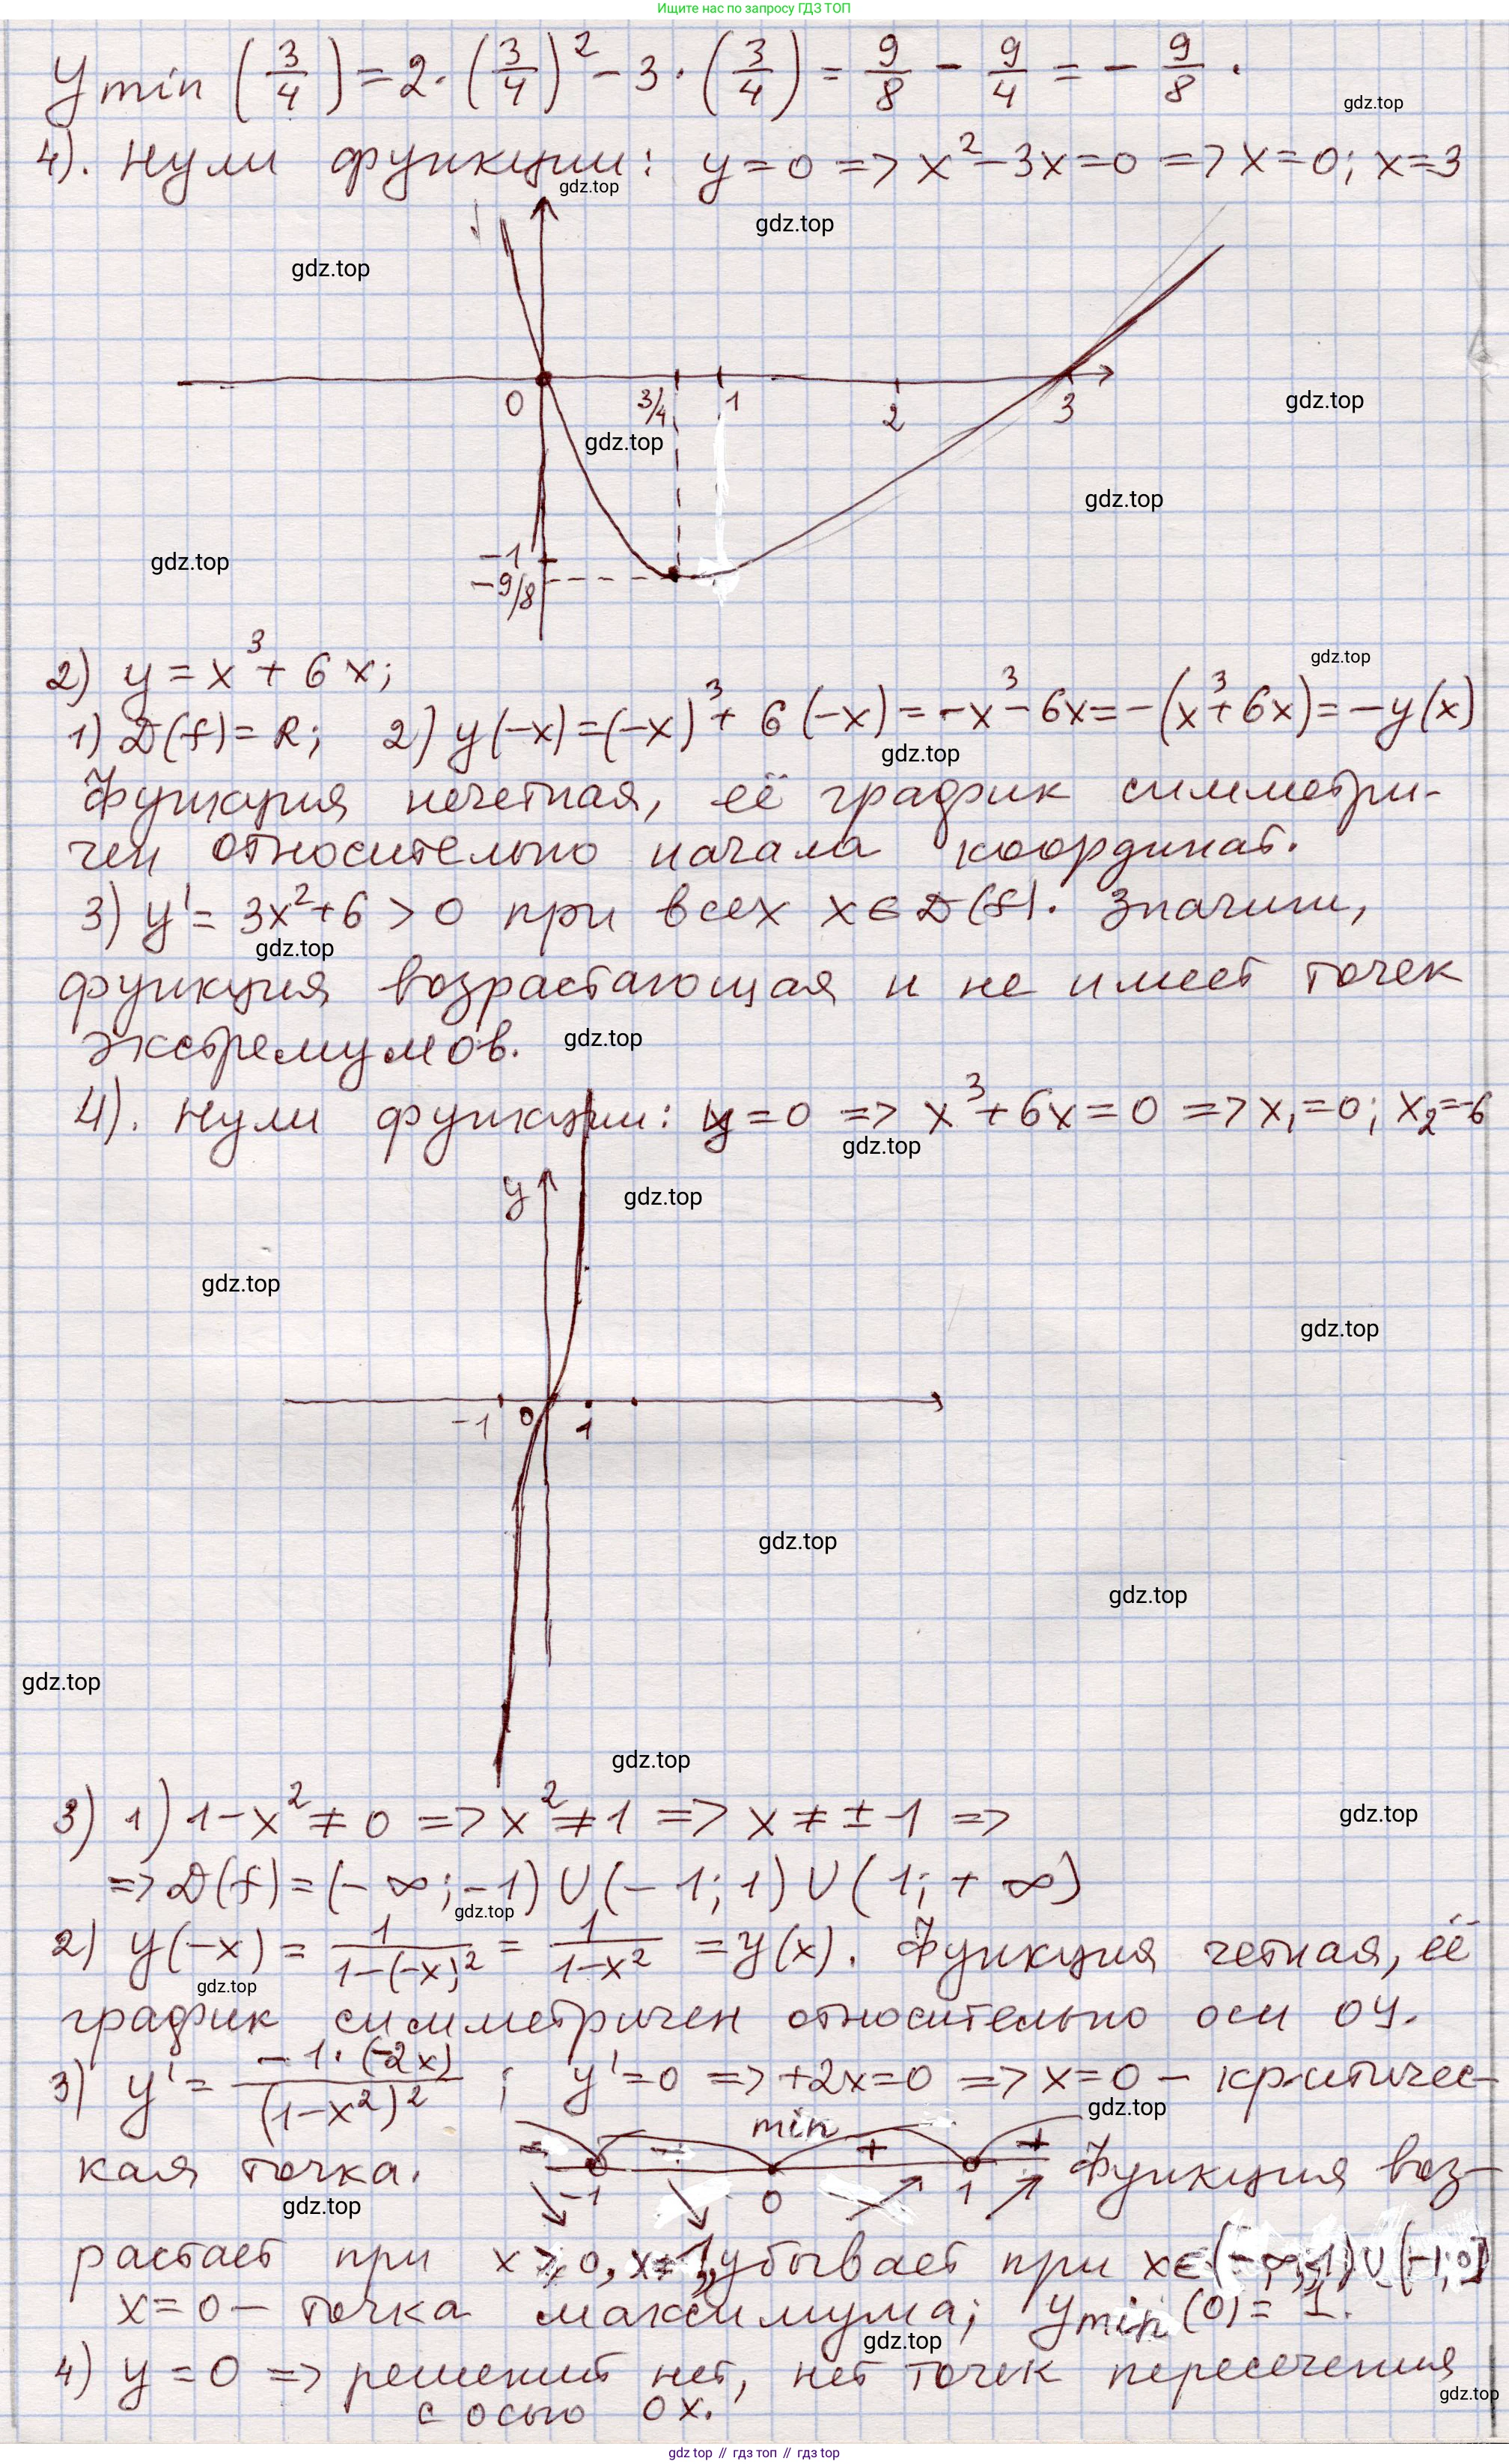 Ищите нас по запросу ГДЗ ТОП
y min (3/4) = 2·(3/4)² - 3·(3/4) = 9/8 - 9/4 = - 9/8.
gdz.top
4). Нули функции: y=0 => x²-3x=0 => x=0; x=3
gdz.top
gdz.top
gdz.top
0 3/4 1 2 3
gdz.top
gdz.top
gdz.top
-1
gdz.top
-9/8
2) y = x³ + 6x;
gdz.top
1) D(f) = R; 2) y(-x) = (-x)³ + 6(-x) = -x³ - 6x = -(x³+6x) = -y(x)
gdz.top
Функция нечетная, её график симметри-
чен относительно начала координат.
3) y' = 3x²+6 > 0 при всех x∈D(f). Значит,
gdz.top
функция возрастающая и не имеет точек
экстремумов.
gdz.top
4). Нули функции: y=0 => x³+6x=0 => x₁=0; x₂=-6
gdz.top
y
gdz.top
gdz.top
gdz.top
-1 0 1
gdz.top
gdz.top
gdz.top
gdz.top
3) 1) 1-x² ≠ 0 => x² ≠ 1 => x ≠ ±1 =>
gdz.top
=> D(f) = (-∞;-1) ∪ (-1;1) ∪ (1;+∞)
gdz.top
2) y(-x) = 1/(1-(-x)²) = 1/(1-x²) = y(x). Функция четная, её
gdz.top
график симметричен относительно оси OY.
3) y' = -1·(-2x)/(1-x²)² ; y'=0 => +2x=0 => x=0 - критичес-
gdz.top
кая точка.
min
- - + +
-1 0 1
Функция воз-
gdz.top
растает при x ⩾ 0, x≠1, убывает при x∈(-∞;-1)∪(-1;0]
x=0 - точка максимума; y min (0) = 1.
gdz.top
4) y = 0 => решений нет, нет точек пересечения
gdz.top
с осью OX.
gdz.top // гдз топ // gdz top